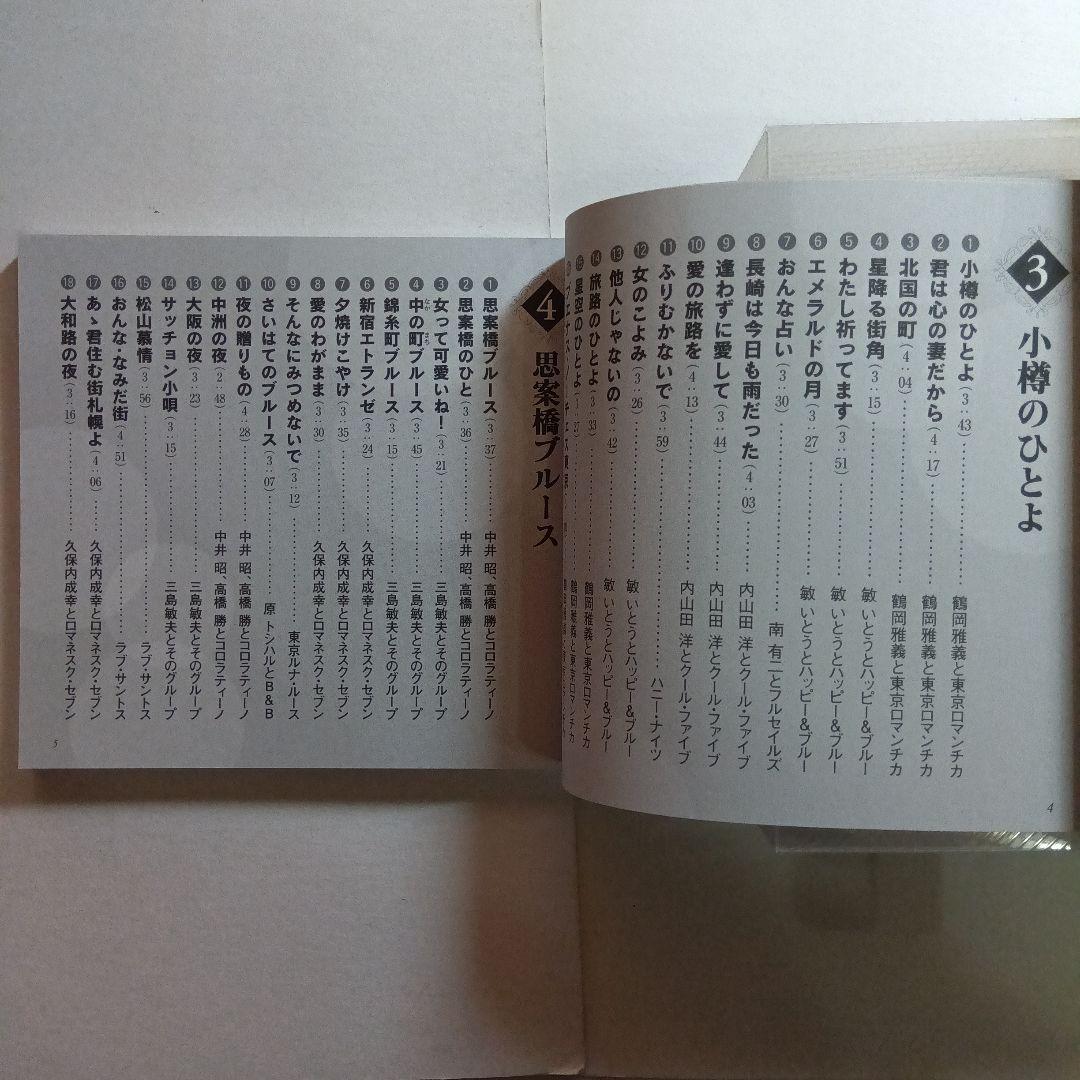 3 小樽のひとよ
❶ 小樽のひとよ (3:43) 鶴岡雅義と東京ロマンチカ
❷ 君は心の妻だから (4:17) 鶴岡雅義と東京ロマンチカ
❸ 北国の町 (4:04) 鶴岡雅義と東京ロマンチカ
❹ 星降る街角 (3:15) 敏 いとうとハッピー&ブルー
❺ わたし祈ってます (3:51) 敏 いとうとハッピー&ブルー
❻ エメラルドの月 (3:27) 敏 いとうとハッピー&ブルー
❼ おんな占い (3:30) 南 有二とフルセイルズ
❽ 長崎は今日も雨だった (4:03) 内山田 洋とクール・ファイブ
❾ 逢わずに愛して (3:44) 内山田 洋とクール・ファイブ
❿ 愛の旅路を (4:13) 内山田 洋とクール・ファイブ
⓫ ふりむかないで (3:59) ハニー・ナイツ
⓬ 女のこよみ (3:26) 敏 いとうとハッピー&ブルー
⓭ 他人じゃないの (3:42) 敏 いとうとハッピー&ブルー
⓮ 旅路のひとよ (3:33) 鶴岡雅義と東京ロマンチカ
⓯ 星空のひとよ 鶴岡雅義と東京ロマンチカ
4
4 思案橋ブルース
❶ 思案橋ブルース (3:37) 中井 昭、高橋 勝とコロラティーノ
❷ 思案橋のひと (3:36) 中井 昭、高橋 勝とコロラティーノ
❸ 女って可愛いね! (3:21) 三島敏夫とそのグループ
❹ 中の町ブルース (3:45) 三島敏夫とそのグループ
❺ 錦糸町ブルース (3:15) 三島敏夫とそのグループ
❻ 新宿エトランゼ (3:24) 久保内成幸とロマネスク・セブン
❼ 夕焼けこやけ (3:35) 久保内成幸とロマネスク・セブン
❽ 愛のわがまま (3:30) 久保内成幸とロマネスク・セブン
❾ そんなにみつめないで (3:12) 東京ルナ・ルース
❿ さいはてのブルース (3:07) 原 トシハルとB&B
⓫ 夜の贈りもの (4:28) 中井 昭、高橋 勝とコロラティーノ
⓬ 中洲の夜 (2:48) 中井 昭、高橋 勝とコロラティーノ
⓭ 大阪の夜 (3:23) 三島敏夫とそのグループ
⓮ サッチョン小唄 (3:15) 三島敏夫とそのグループ
⓯ 松山慕情 (3:56) ラブ・サントス
⓰ おんな・なみだ街 (4:51) ラブ・サントス
⓱ あゝ君住む街札幌よ (4:06) 久保内成幸とロマネスク・セブン
⓲ 大和路の夜 (3:16) 久保内成幸とロマネスク・セブン
5